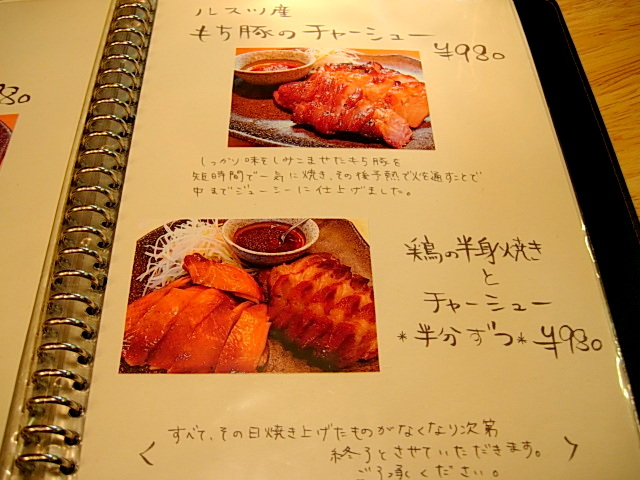 ルスツ産
もち豚のチャーシュー
¥980
しっかり味をしみこませたもち豚を
短時間で一気に焼き、その後予熱で火を通すことで
中までジューシーに仕上げました。
鶏の半身焼き
と
チャーシュー
*半分ずつ* ¥980
すべて、その日焼き上げたものがなくなり次第
終了とさせていただきます。
ご了承ください。
80